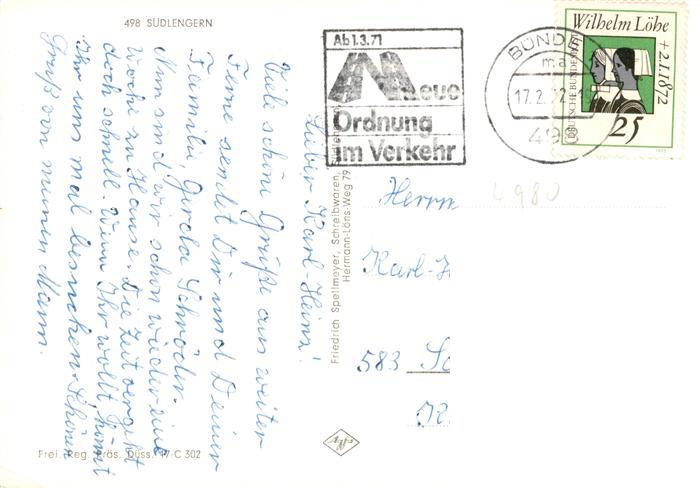 498 SÜDLENGERN
Lieber Karl-Heinz!
Viele schöne Grüße aus weiter
Ferne sendet Dir und Deiner
Familie Gerda Schröder.
Nun sind wir schon wieder eine
Woche zu Hause. Die Zeit vergeht
doch schnell. Wenn Ihr wollt, könnt
Ihr uns mal besuchen. Schönen
Gruß von meinem Mann.
Frei. Reg. Präs. Düss. 17-C 302
Friedrich Spellmeyer, Schreibwaren,
Hermann-Löns-Weg 79
Agfa
Ab 1.3.71
Neue
Ordnung
im Verkehr
BÜNDE
17.2.72
49
Wilhelm Löhe + 2.1.1872
DEUTSCHE BUNDESPOST
25
1972
4980
Herrn
Karl-H
583 Sc